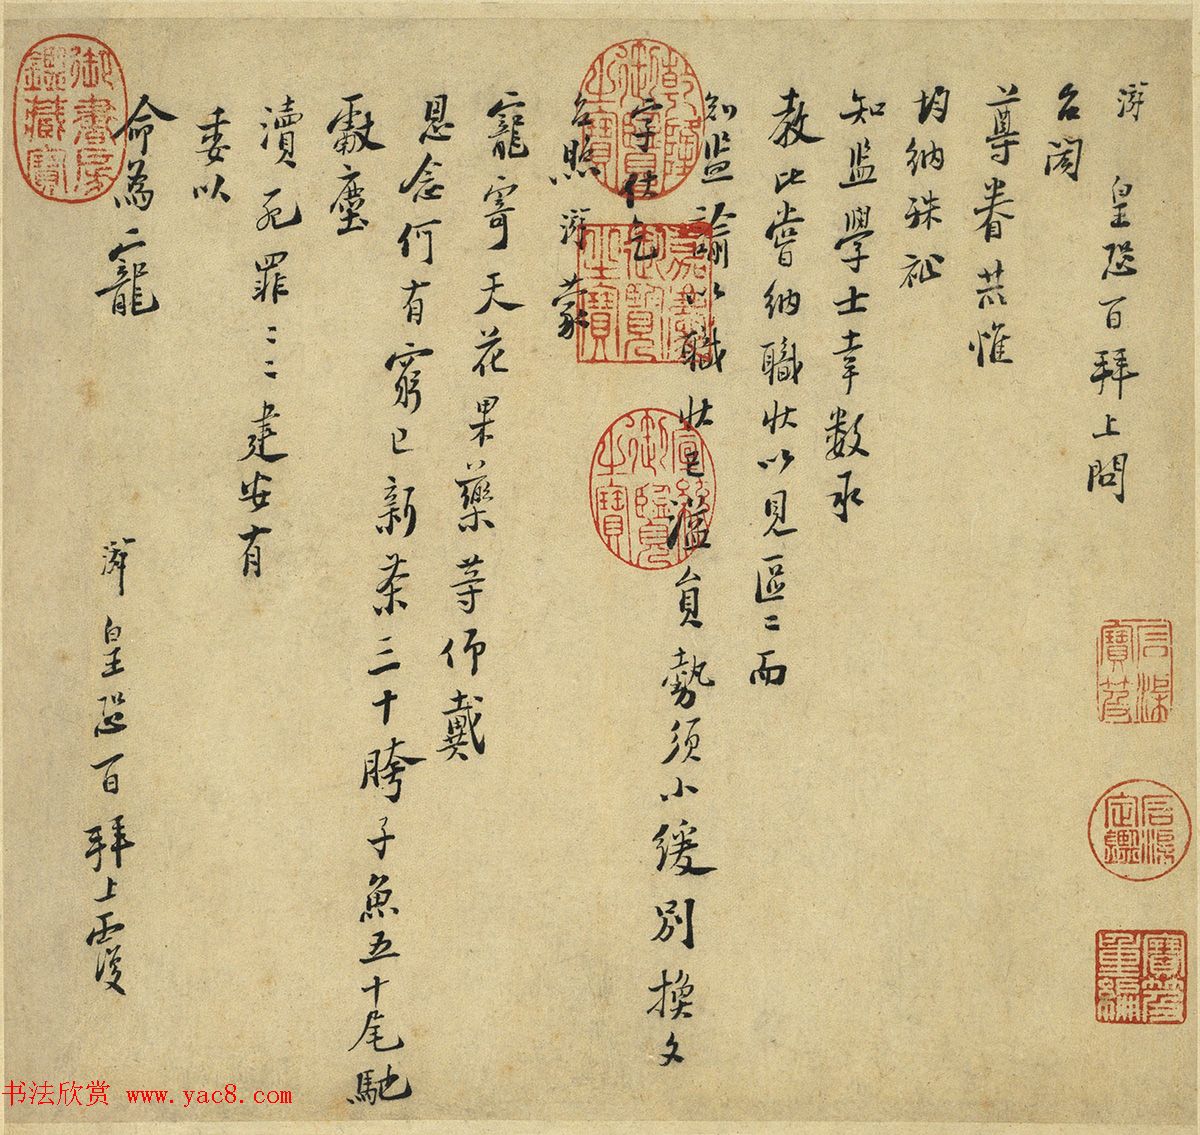 游 皇恐百拜上問
台閤
尊眷共惟
均納殊祉
知监學士幸數承
教比嘗納職狀以見區〻而
知监諭以職狀已溢員勢須小緩別換文
字伏乞
台照游蒙
寵寄天花果藥等仰戴
恩念何有窮已新茶三十胯子魚五十尾馳
獻塵
瀆死罪〻〻建安有
委以
命為寵
游皇恐百拜上覆
乾隆御覽之寶
嘉慶御覽之寶
宣統御覽之寶
御書房鑑藏寶
石渠寶笈
石渠定鑑
寶笈重編
书法欣赏 www.yac8.com